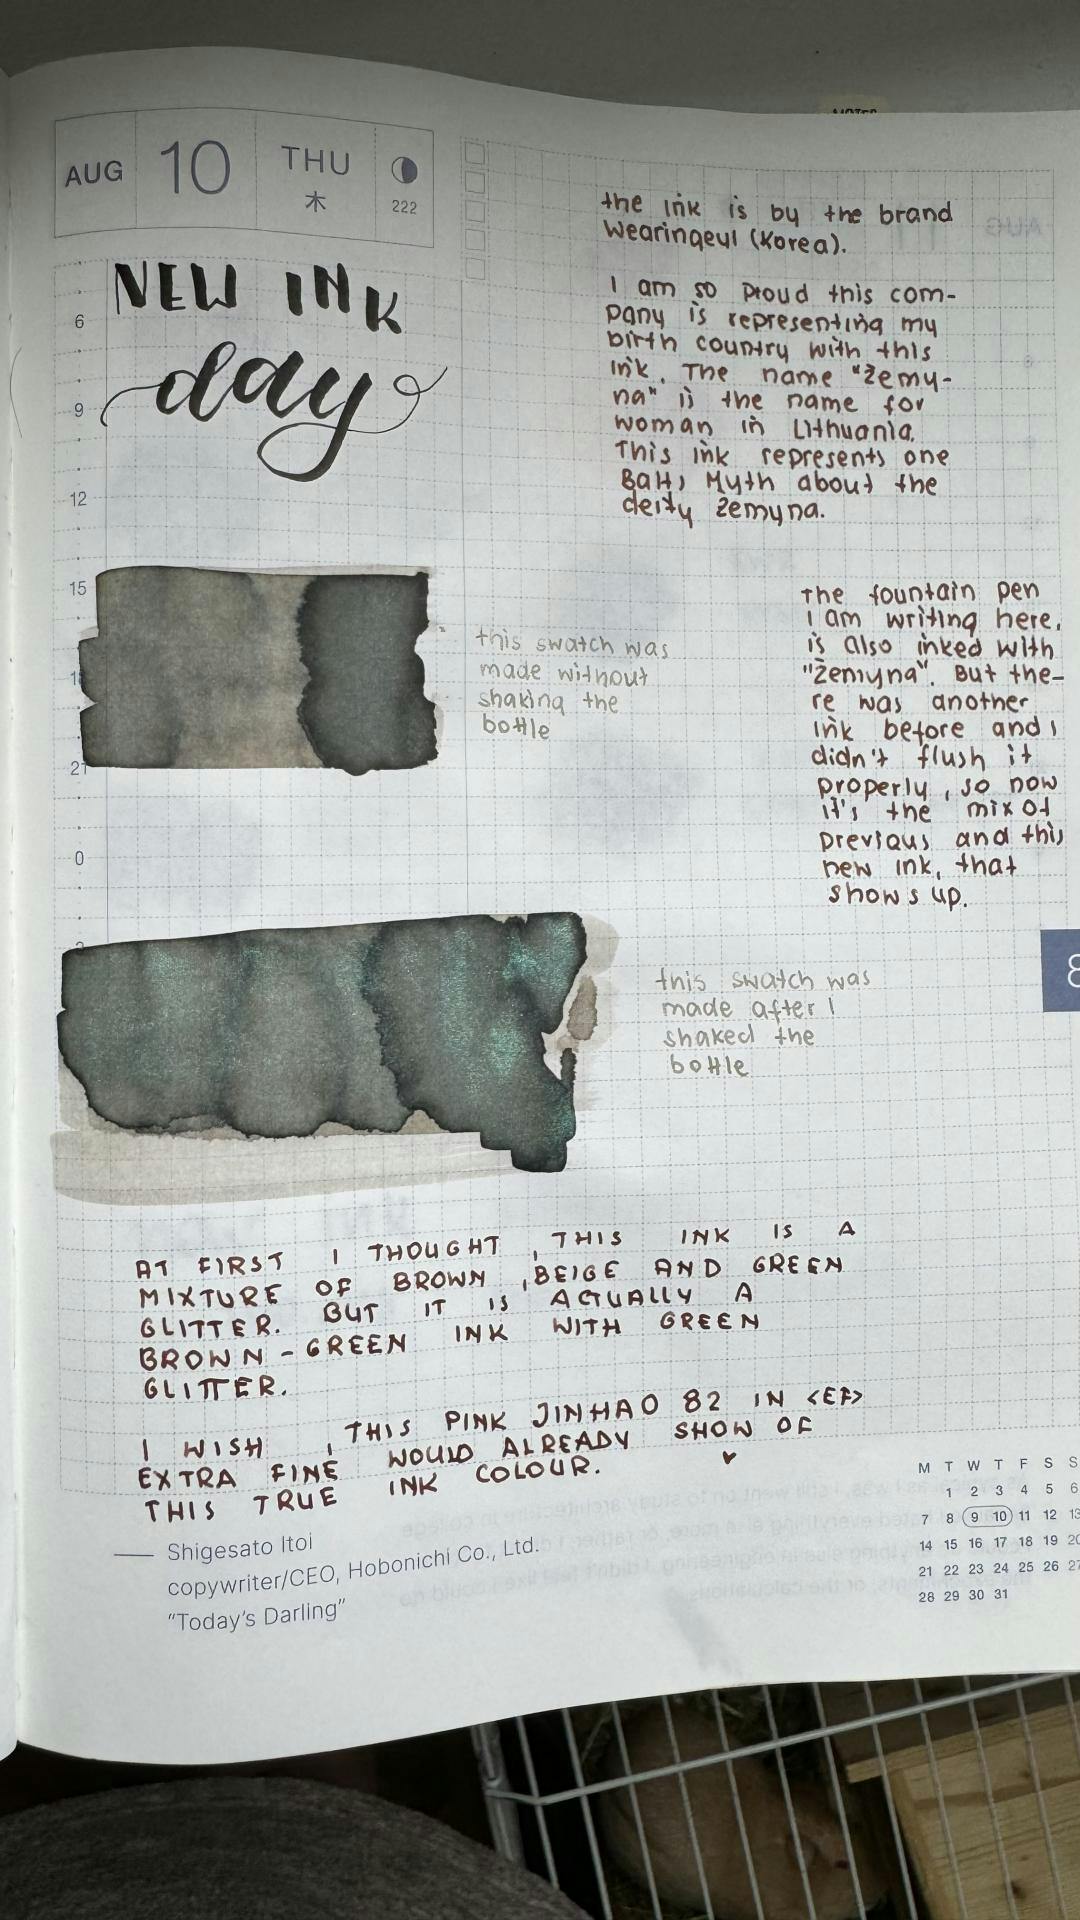 AUG 10 THU 木 222
NEW INK
day
6
9
12
15
21
0
the ink is by the brand
Wearingeul (Korea).
I am so proud this com-
pany is representing my
birth country with this
ink. The name "žemy-
na" is the name for
woman in Lithuania.
This ink represents one
Balts Myth about the
deity žemyna.
this swatch was
made without
shaking the
bottle
The fountain pen
I am writing here,
is also inked with
"žemyna". But the-
re was another
ink before and I
didn't flush it
properly, so now
it's the mix of
previous and this
new ink, that
shows up.
8
this swatch was
made after I
shaked the
bottle
AT FIRST I THOUGHT, THIS INK IS A
MIXTURE OF BROWN, BEIGE AND GREEN
GLITTER. BUT IT IS ACTUALLY A
BROWN-GREEN INK WITH GREEN
GLITTER.
I WISH, THIS PINK JINHAO 82 IN <EF>
EXTRA FINE WOULD ALREADY SHOW OF
THIS TRUE INK COLOUR.
— Shigesato Itoi
copywriter/CEO, Hobonichi Co., Ltd.
"Today's Darling"
M T W T F S S
1 2 3 4 5 6
7 8 9 10 11 12 13
14 15 16 17 18 19 20
21 22 23 24 25 26 27
28 29 30 31